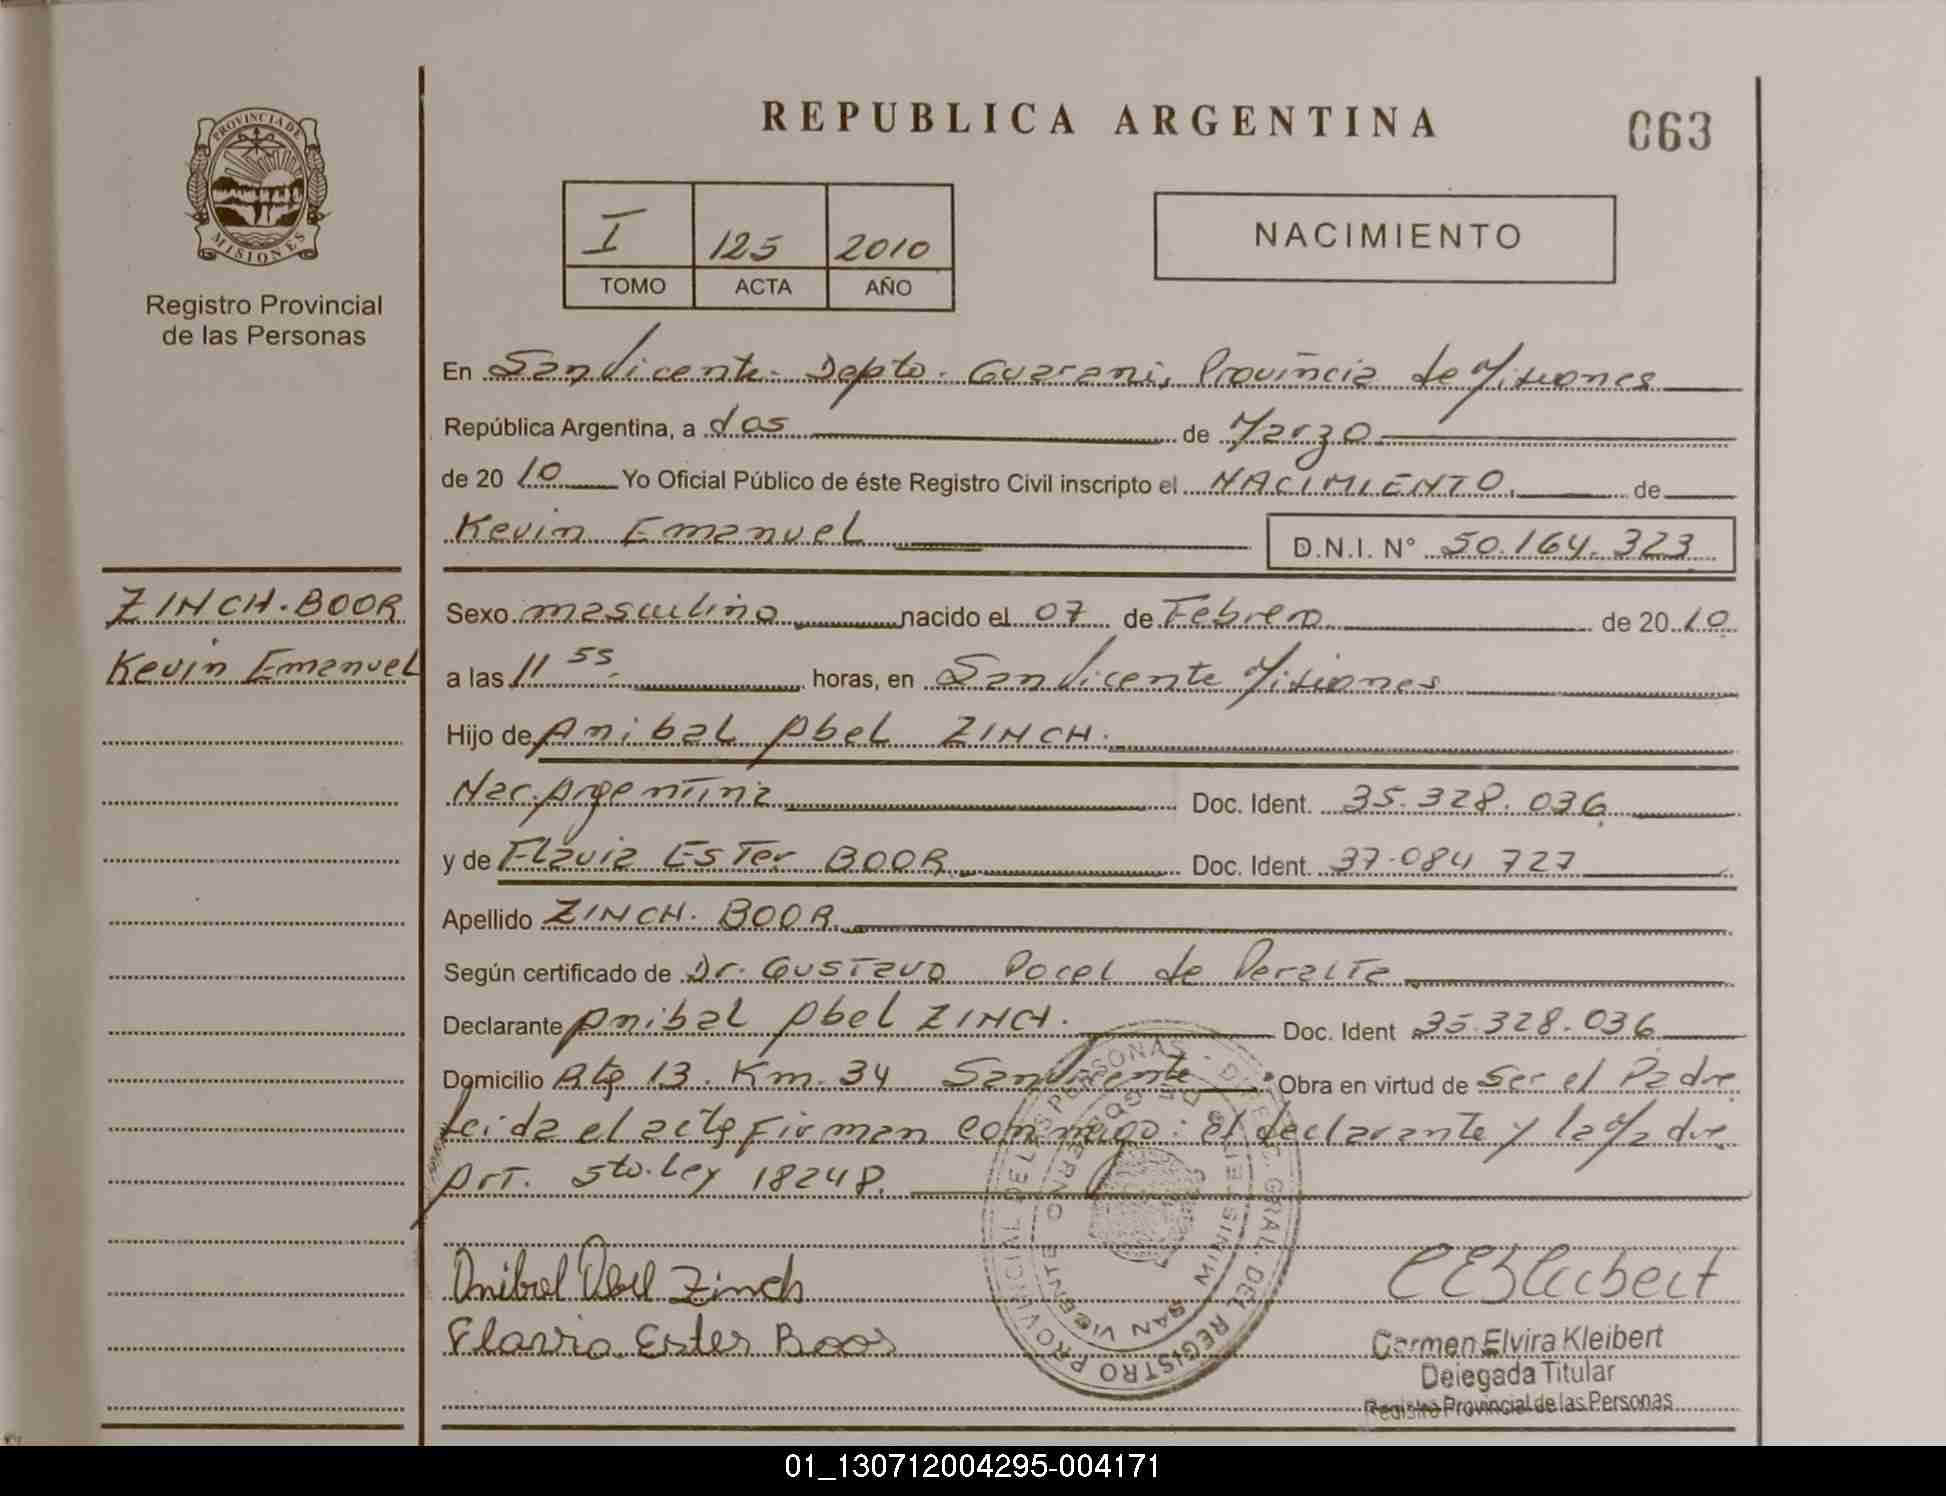 REPUBLICA ARGENTINA
063
PROVINCIA DE
MISIONES
Registro Provincial
de las Personas
I 125 2010
TOMO ACTA AÑO
NACIMIENTO
En San Vicente - Depto. Guarani, Provincia de Misiones
República Argentina, a dos de Marzo
de 20 10 Yo Oficial Público de éste Registro Civil inscripto el NACIMIENTO. de
Kevin Emanuel D.N.I. N° 50.164.323
ZINCH.BOOR
Kevin Emanuel
Sexo masculino nacido el 07 de Febrero de 20 10
a las 11 55 horas, en San Vicente Misiones
Hijo de Anibal Abel ZINCH.
Nac. Argentina Doc. Ident. 35.328.036
y de Flavia Ester BOOR Doc. Ident. 37.084 727
Apellido ZINCH. BOOR
Según certificado de Dr. Gustavo Pocel de Peralta
Declarante Anibal Abel ZINCH. Doc. Ident 35.328.036
Domicilio Rta 13. Km. 34 San Vicente Obra en virtud de Ser el Padre
Leida el acta Firman conmigo: El declarante y la Madre
Art. 5to. Ley 18248.
Anibal Abel Zinch
Flavia Ester Boor
REGISTRO PROVINCIAL DE LAS PERSONAS - DIREC. GRAL. DEL
SAN VICENTE
MINISTERIO DE GOBIERNO
CEKleibert
Carmen Elvira Kleibert
Delegada Titular
Registro Provincial de las Personas
01_130712004295-004171